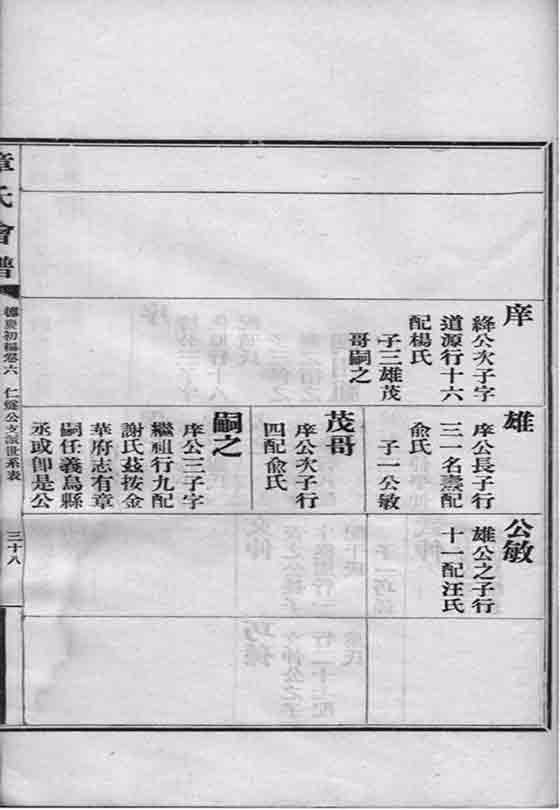 庠
絳公次子字
道源行十六
配楊氏
子三雄茂
哥嗣之
雄
庠公長子行
三一名壽配
兪氏
子一公敏
茂哥
庠公次子行
四配兪氏
嗣之
庠公三子字
繼祖行九配
謝氏茲按金
華府志有章
嗣任義烏縣
丞或卽是公
公敏
雄公之子行
十一配汪氏
章氏會譜
德慶初編卷六
公支派世系表
三十八